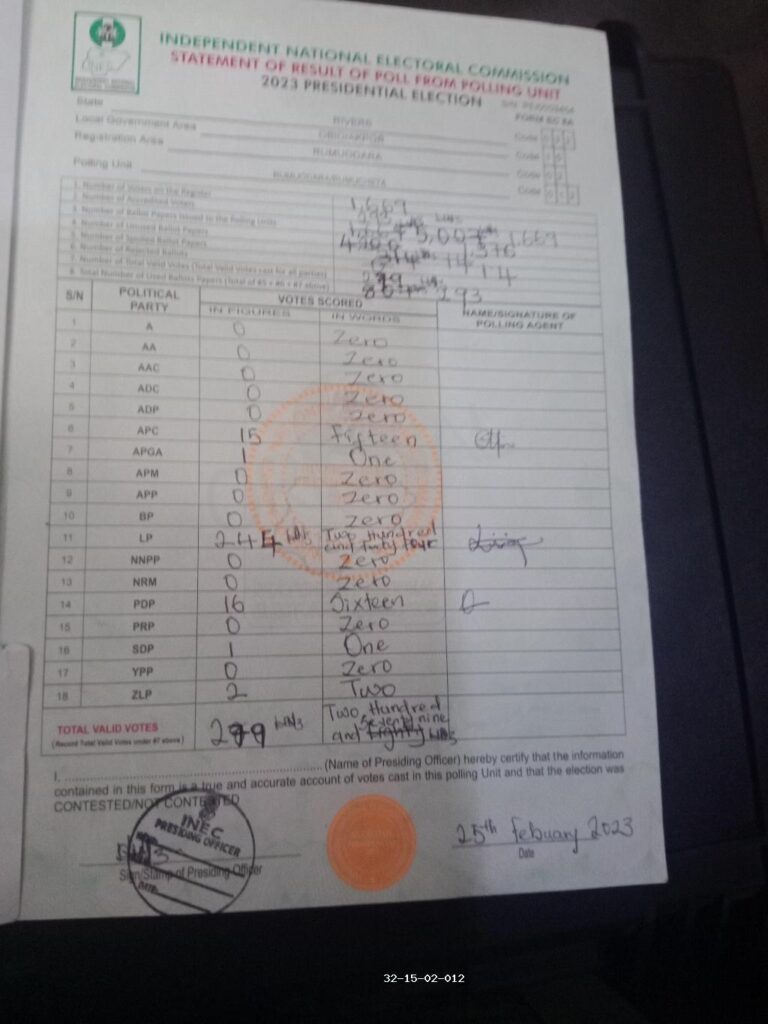 INDEPENDENT NATIONAL ELECTORAL COMMISSION
STATEMENT OF RESULT OF POLL FROM POLLING UNIT
2023 PRESIDENTIAL ELECTION
FORM EC 8A
State RIVERS Code
Local Government Area OBIO/AKPOR Code
Registration Area RUMUODARA Code
Polling Unit Code
1. Number of Voters on the Register 1,669
2. Number of Accredited Voters
3. Number of Ballot Papers Issued to the Polling Units 1,669
4. Number of Unused Ballot Papers 1,376
5. Number of Spoiled Ballot Papers
6. Number of Rejected Ballots 14
7. Number of Total Valid Votes (Total Valid Votes cast for all parties) 279
8. Total Number of Used Ballot Papers (Total of #5 + #6 + #7 above) 293
S/N POLITICAL PARTY VOTES SCORED NAME/SIGNATURE OF POLLING AGENT
IN FIGURES IN WORDS
1 A 0 Zero
2 AA 0 Zero
3 AAC 0 Zero
4 ADC 0 Zero
5 ADP 0 Zero
6 APC 15 Fifteen
7 APGA 1 One
8 APM 0 Zero
9 APP 0 Zero
10 BP 0 Zero
11 LP 244 Two Hundred and forty four
12 NNPP 0 Zero
13 NRM 0 Zero
14 PDP 16 Sixteen
15 PRP 0 Zero
16 SDP 1 One
17 YPP 0 Zero
18 ZLP 2 Two
TOTAL VALID VOTES 279 Two Hundred and Seventy nine
(Record Total Valid Votes under #7 above)
I, (Name of Presiding Officer) hereby certify that the information
contained in this form is a true and accurate account of votes cast in this polling Unit and that the election was
CONTESTED/NOT CONTESTED
INEC
PRESIDING OFFICER
DATE
Sign/Stamp of Presiding Officer
25th Febuary 2023
Date
32-15-02-012